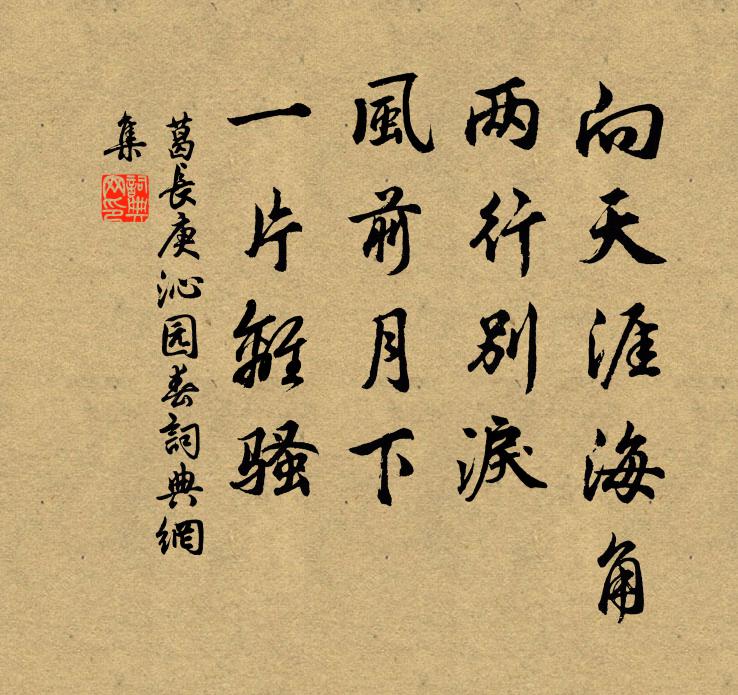 向天涯海角
两行别淚
風前月下
一片離骚
葛長庚沁园春詞典網
集
詞典網印